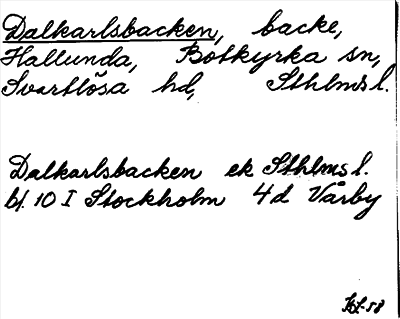 Dalkarlsbacken, backe,
Hallunda, Botkyrka sn,
Svartlösa hd, Sthlms l.
Dalkarlsbacken ek Sthlms l.
bl. 10 I Stockholm 4d Vårby